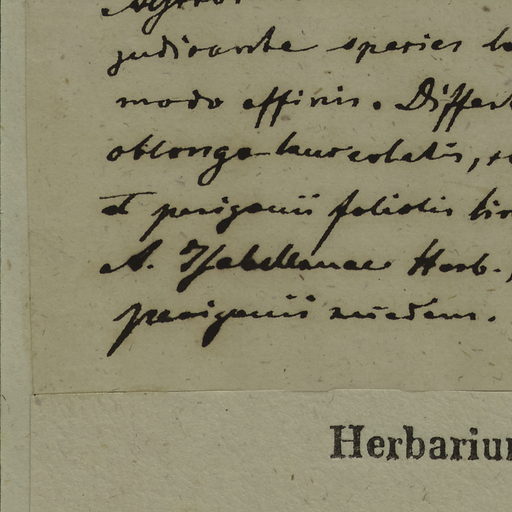 judicante species
modo affinis. Differt
oblongo-lanceolatis,
et perigonii foliolis
A. Isabellanae Herb.
perigonii
Herbariu